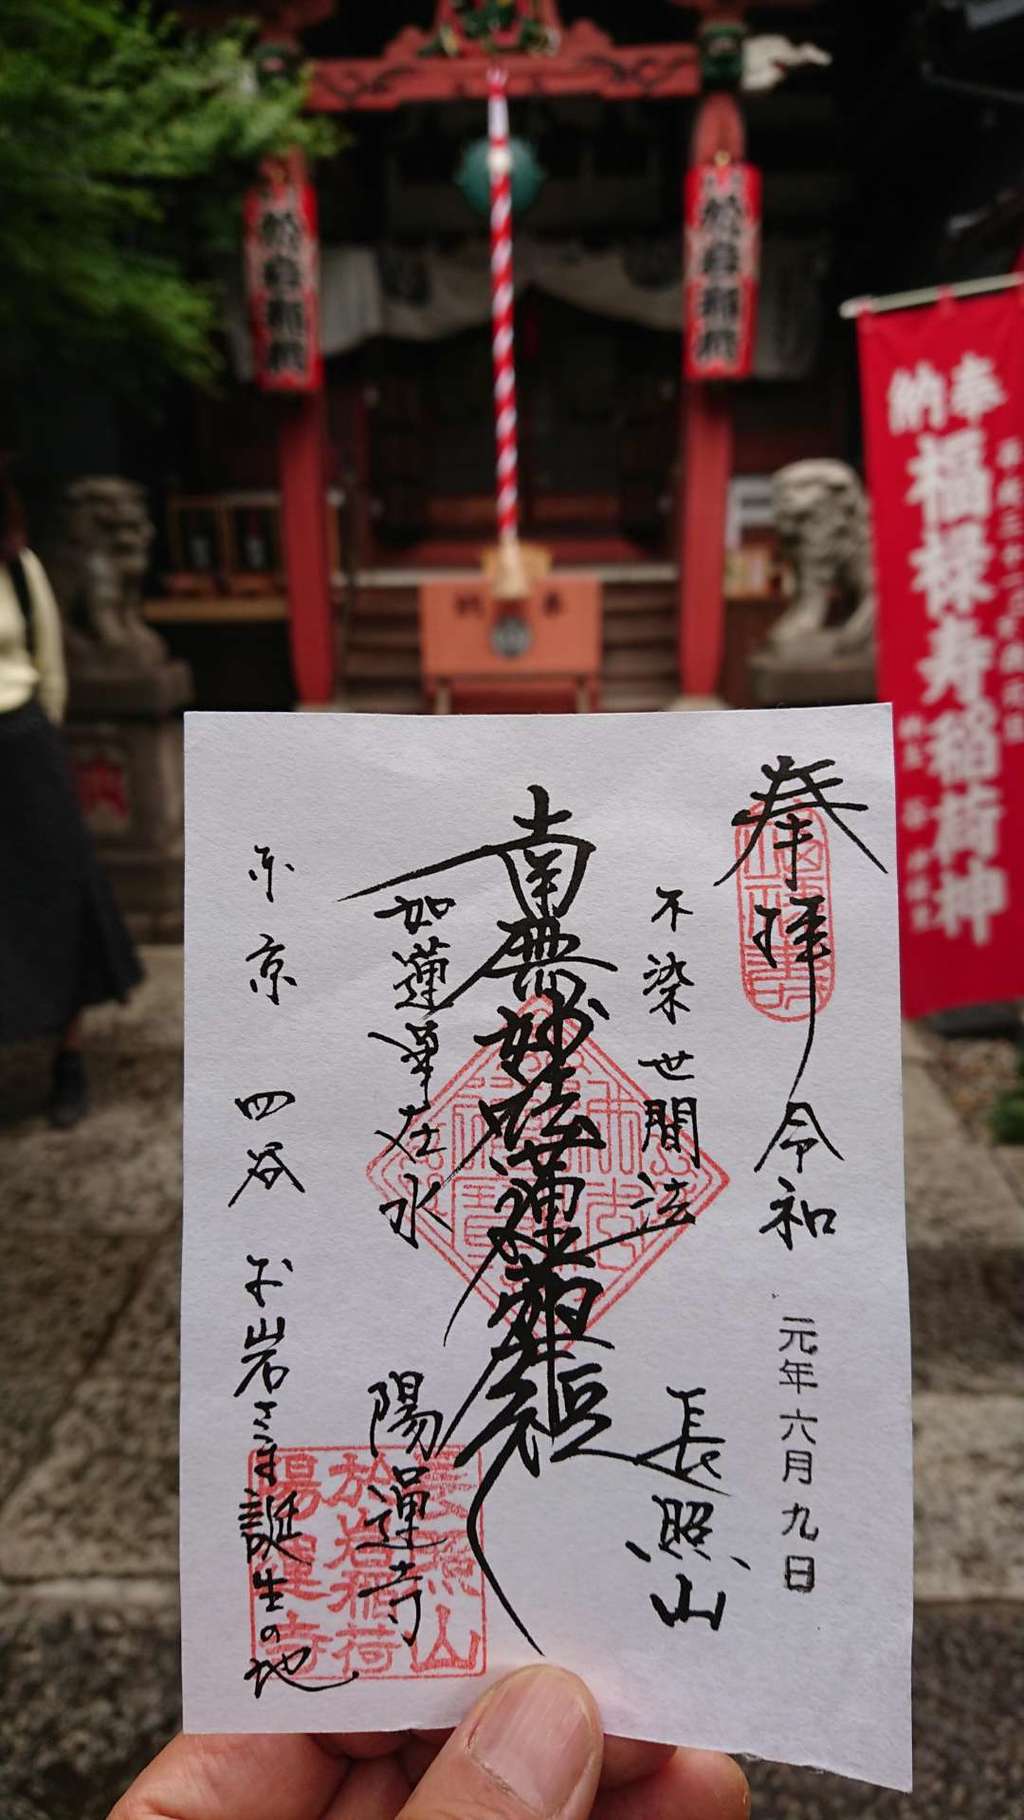 於岩稲荷
於岩稲荷
奉納
福禄寿稲荷神
奉納
奉拝
令和
元年六月九日
不染世間法
長照山
南無妙法蓮華経
如蓮華在水
陽運寺
東京 四谷 お岩さま誕生の地
福禄寿
長照山
於岩稲荷
陽運寺